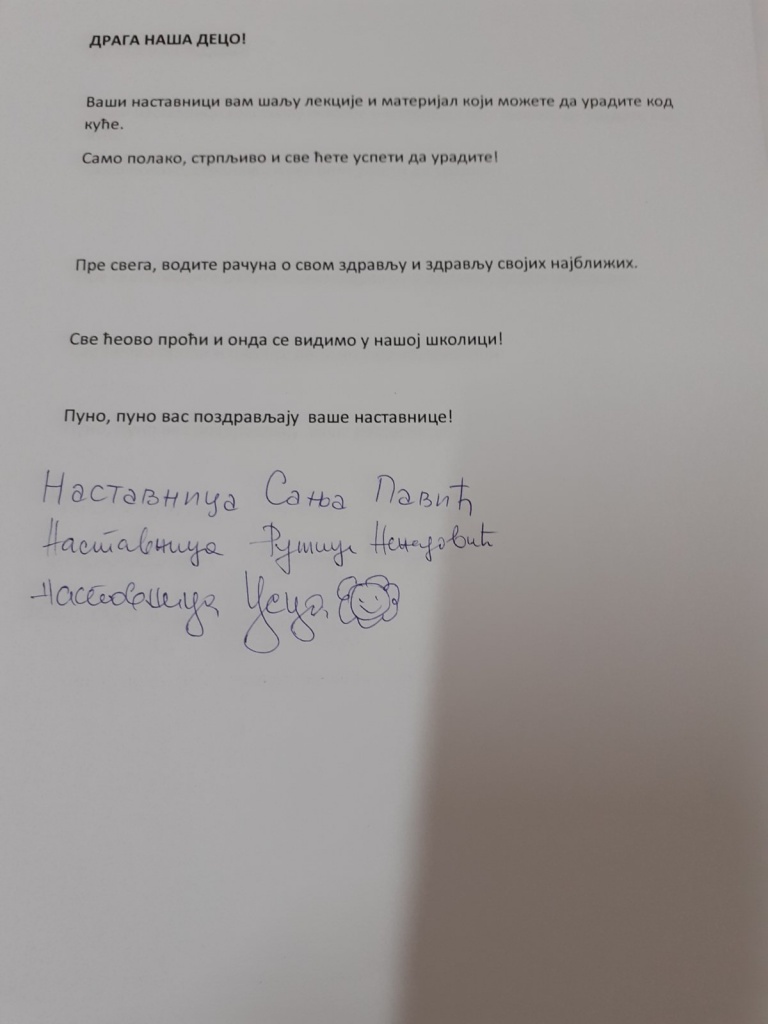 ДРАГА НАША ДЕЦО!
Ваши наставници вам шаљу лекције и материјал који можете да урадите код
куће.
Само полако, стрпљиво и све ћете успети да урадите!
Пре свега, водите рачуна о свом здрављу и здрављу својих најближих.
Све ћеово проћи и онда се видимо у нашој школици!
Пуно, пуно вас поздрављају ваше наставнице!
Наставница Сања Павић
Наставница Ненадовић
Наставница Цеца